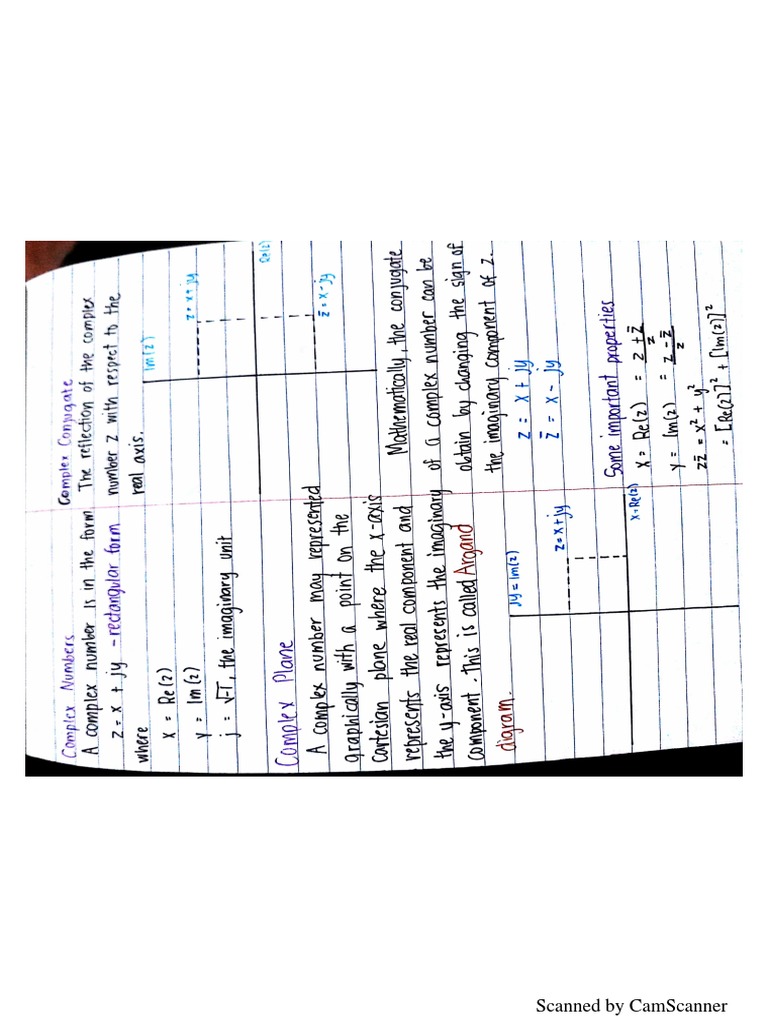 Complex Numbers
A complex number is in the form
z = x + jy - rectangular form
where
x = Re(z)
y = Im(z)
j = √-1, the imaginary unit
Complex Plane
A complex number may represented
graphically with a point on the
cartesian plane where the x-axis
represents the real component and
the y-axis represents the imaginary
component. This is called Argand
digram.
jy = Im(z)
z = x + jy
x = Re(z)
Complex Conjugate
The reflection of the complex
number z with respect to the
real axis.
Im(z)
z = x + jy
Re(z)
z̄ = x - jy
Mathematically, the conjugate
of a complex number can be
obtain by changing the sign of
the imaginary component of z.
z = x + jy
z̄ = x - jy
Some important properties
x = Re(z) = z + z̄ / 2
y = Im(z) = z - z̄ / 2
zz̄ = x² + y²
= [Re(z)]² + [Im(z)]²
Scanned by CamScanner